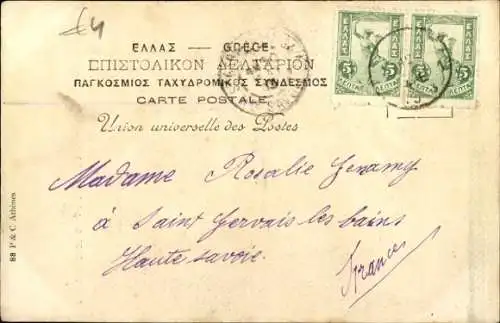 £4
ΕΛΛΑΣ — GRÈCE
ΕΠΙΣΤΟΛΙΚΟΝ ΔΕΛΤΑΡΙΟΝ
ΠΑΓΚΟΣΜΙΟΣ ΤΑΧΥΔΡΟΜΙΚΟΣ ΣΥΝΔΕΣΜΟΣ
CARTE POSTALE
Union universelle des Postes
ΕΛΛΑΣ ΕΛΛΑΣ
5 5 5 5
ΛΕΠΤΑ ΛΕΠΤΑ
Madame Rosalie Jenamy
à Saint Gervais les bains
Haute savoie.
France
88 P & C. Athènes